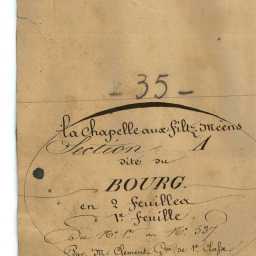 - 35 -
La Chapelle aux Filtz Méens
Section A
dite du
BOURG.
en 2 feuilles
1re feuille
du N° 1er au N° 537
Par Mr Clément Géom. de 1re Classe